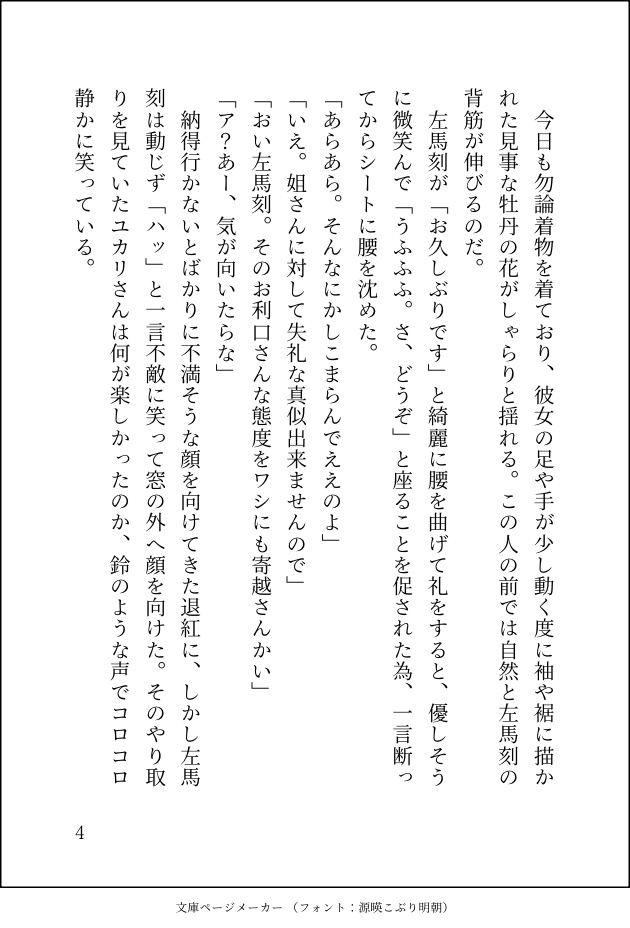 今日も勿論着物を着ており、彼女の足や手が少し動く度に袖や裾に描か
れた見事な牡丹の花がしゃらりと揺れる。この人の前では自然と左馬刻の
背筋が伸びるのだ。
　左馬刻が「お久しぶりです」と綺麗に腰を曲げて礼をすると、優しそう
に微笑んで「うふふふ。さ、どうぞ」と座ることを促された為、一言断っ
てからシートに腰を沈めた。
「あらあら。そんなにかしこまらんでええのよ」
「いえ。姐さんに対して失礼な真似出来ませんので」
「おい左馬刻。そのお利口さんな態度をワシにも寄越さんかい」
「ア？あー、気が向いたらな」
　納得行かないとばかりに不満そうな顔を向けてきた退紅に、しかし左馬
刻は動じず「ハッ」と一言不敵に笑って窓の外へ顔を向けた。そのやり取
りを見ていたユカリさんは何が楽しかったのか、鈴のような声でコロコロ
静かに笑っている。
4
文庫ページメーカー （フォント：源暎こぶり明朝）